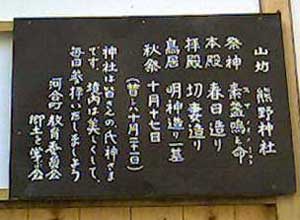 山坊 熊野神社
祭神 素盞鳴之命
本殿 春日造り
拝殿 切妻造り
鳥居 明神造り一基
秋祭 十月十七日
(昔は十月二十一日)
神社は皆さんの氏神さま
です。境内は美しくして、
毎日参拝いたしましょう
河合町 教育委員会
郷土を学ぶ会